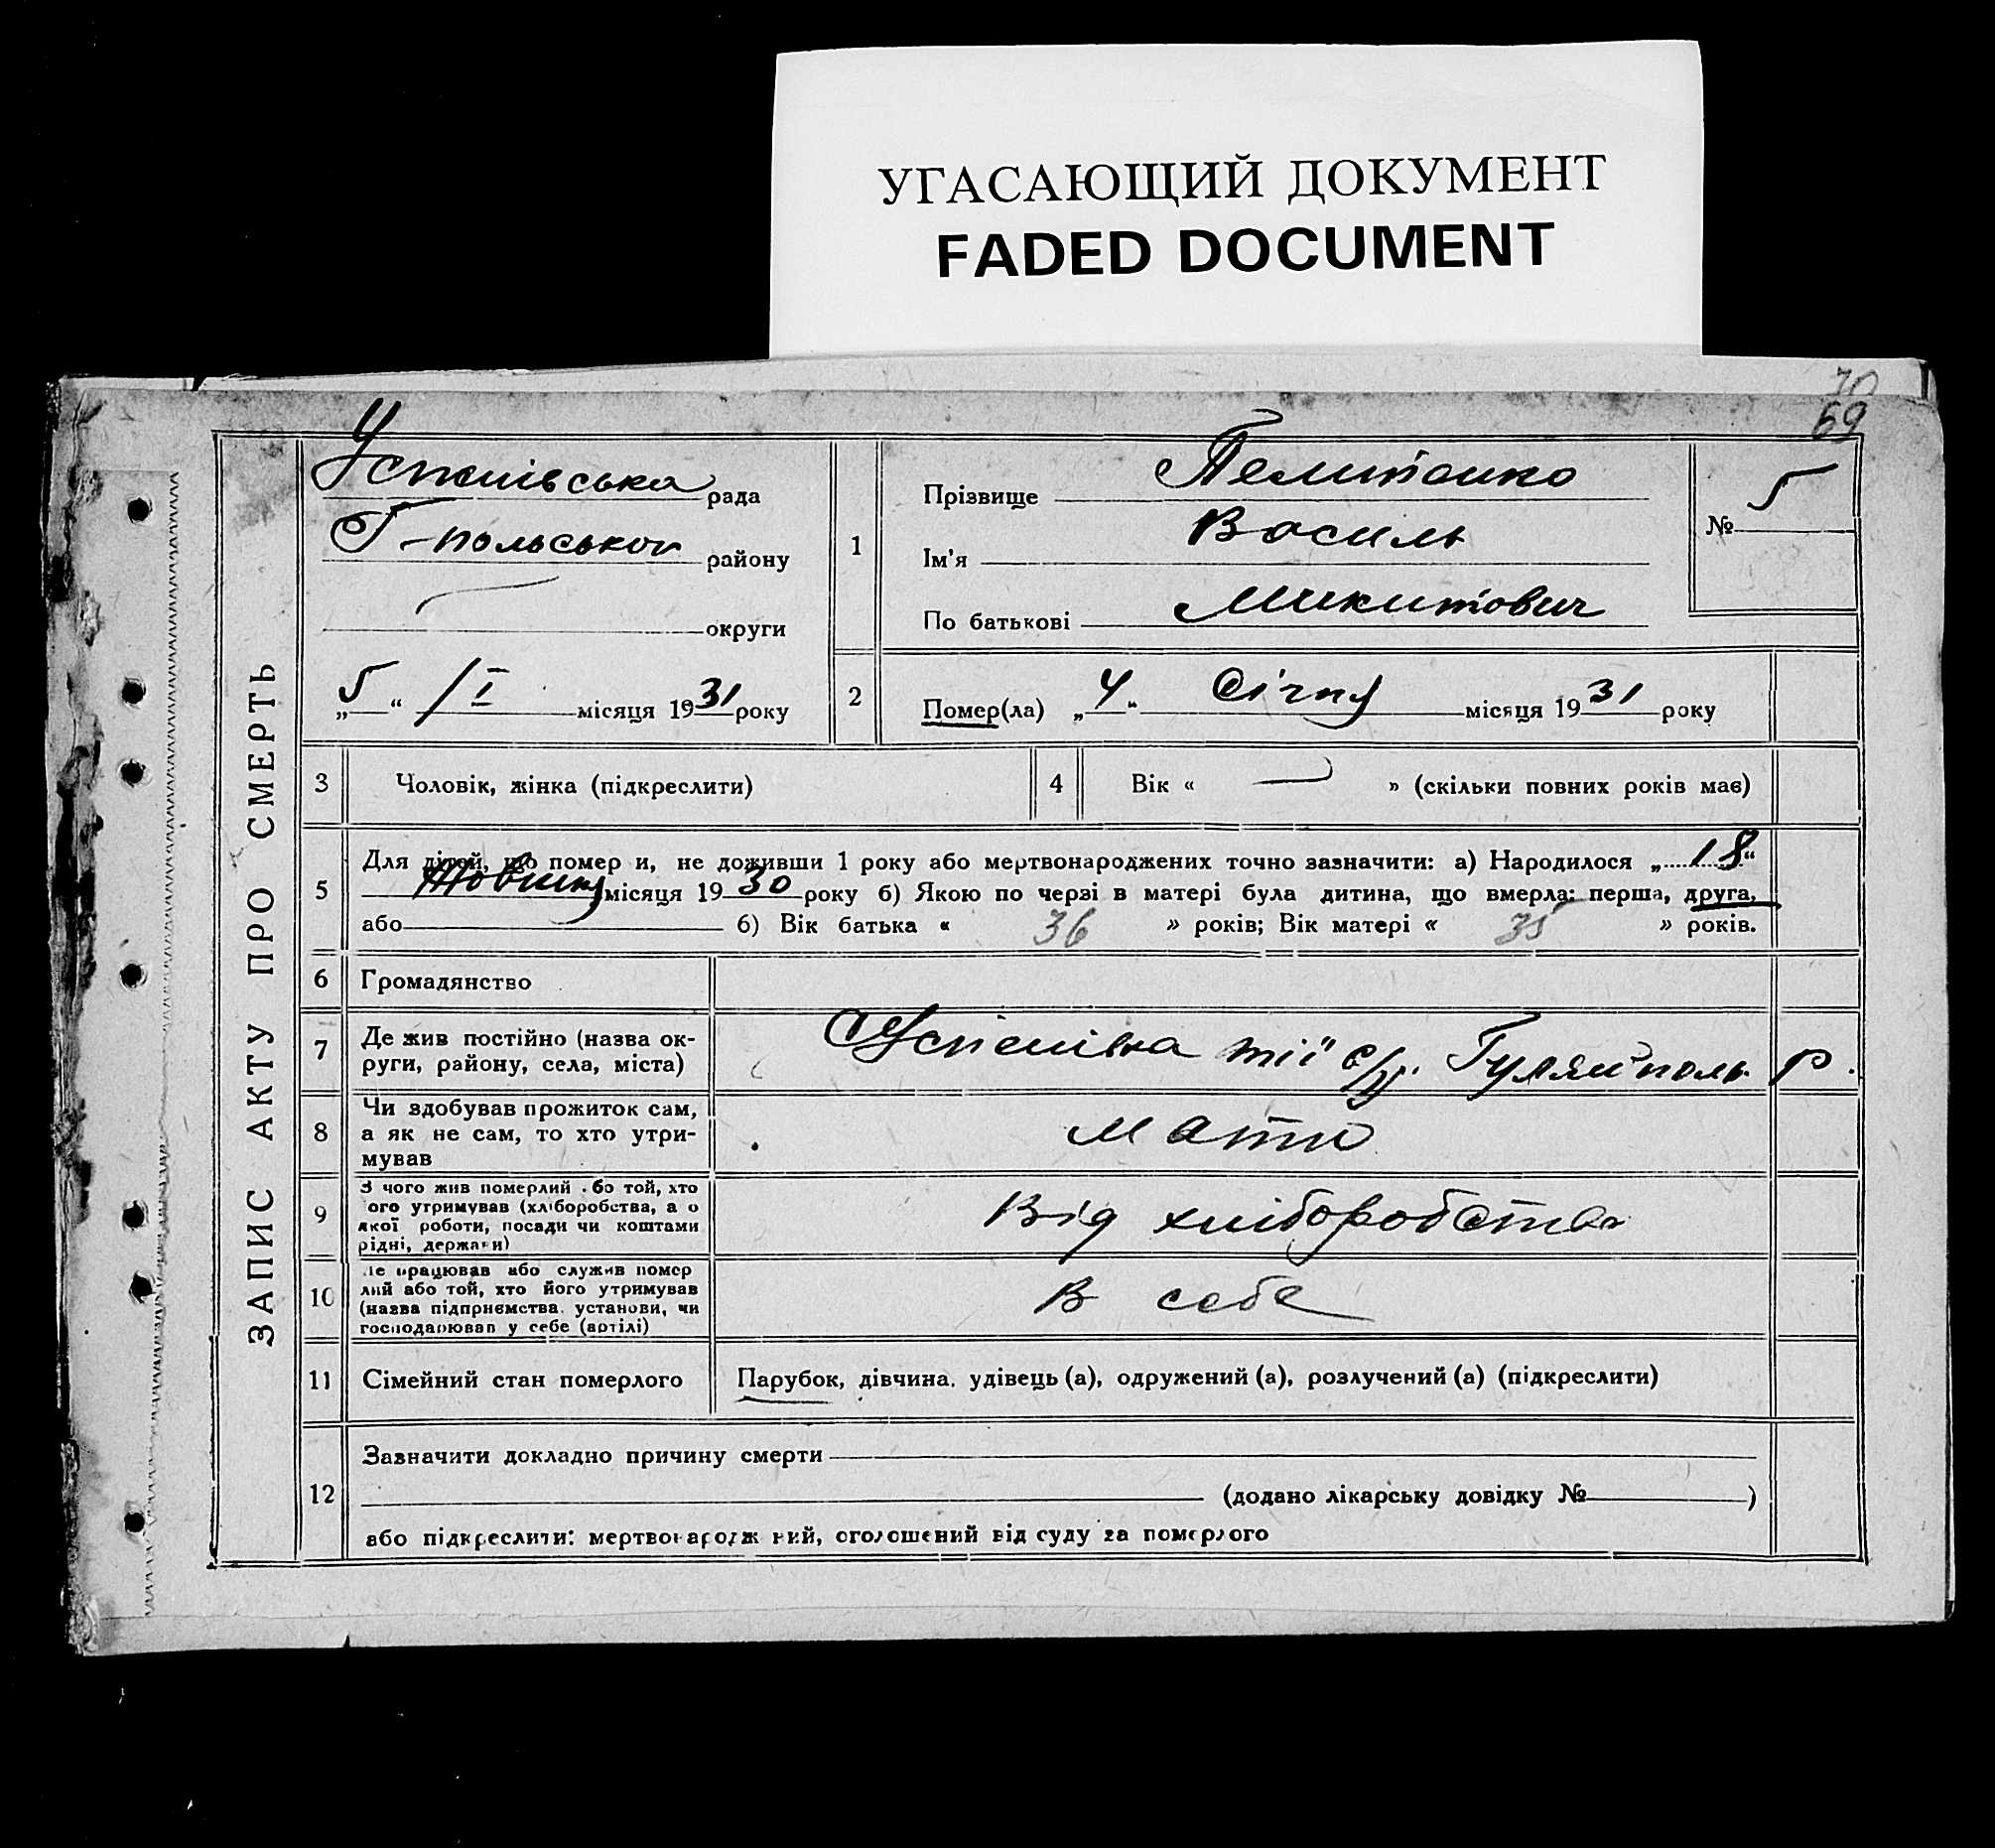 УГАСАЮЩИЙ ДОКУМЕНТ
FADED DOCUMENT
70
69
ЗАПИС АКТУ ПРО СМЕРТЬ
Успенівська рада
Г-польського району
округи
„5“ /I місяця 1931 року
1
Прізвище
Ім'я Василь
По батькові Микитович
№ 5
2
Помер(ла) „4“ Січня місяця 1931 року
3 Чоловік, жінка (підкреслити)
4 Вік « — » (скільки повних років має)
5
Для дітей, що помер и, не доживши 1 року або мертвонароджених точно зазначити: а) Народилося „18“
Жовтня місяця 1930 року б) Якою по черзі в матері була дитина, що вмерла: перша, друга,
або б) Вік батька « 36 » років; Вік матері « 35 » років.
6 Громадянство
7 Де жив постійно (назва ок-
руги, району, села, міста)
Успенівка тії с/р. Гуляйполь р.
8 Чи здобував прожиток сам,
а як не сам, то хто утри-
мував
мати
9 З чого жив померлий або той, хто
ого утримував (хліборобства, а о
якої роботи, посади чи коштами
рідні, держави)
Від хліборобства
10 Де працював або служив помер
лий або той, хто його утримував
(назва підприємства, установи, чи
господарював у себе (артілі)
В себе
11 Сімейний стан померлого
Парубок, дівчина, удівець (а), одружений (а), розлучений (а) (підкреслити)
12
Зазначити докладно причину смерти
(додано лікарську довідку № )
або підкреслити: мертвонароджений, оголошений від суду за померлого